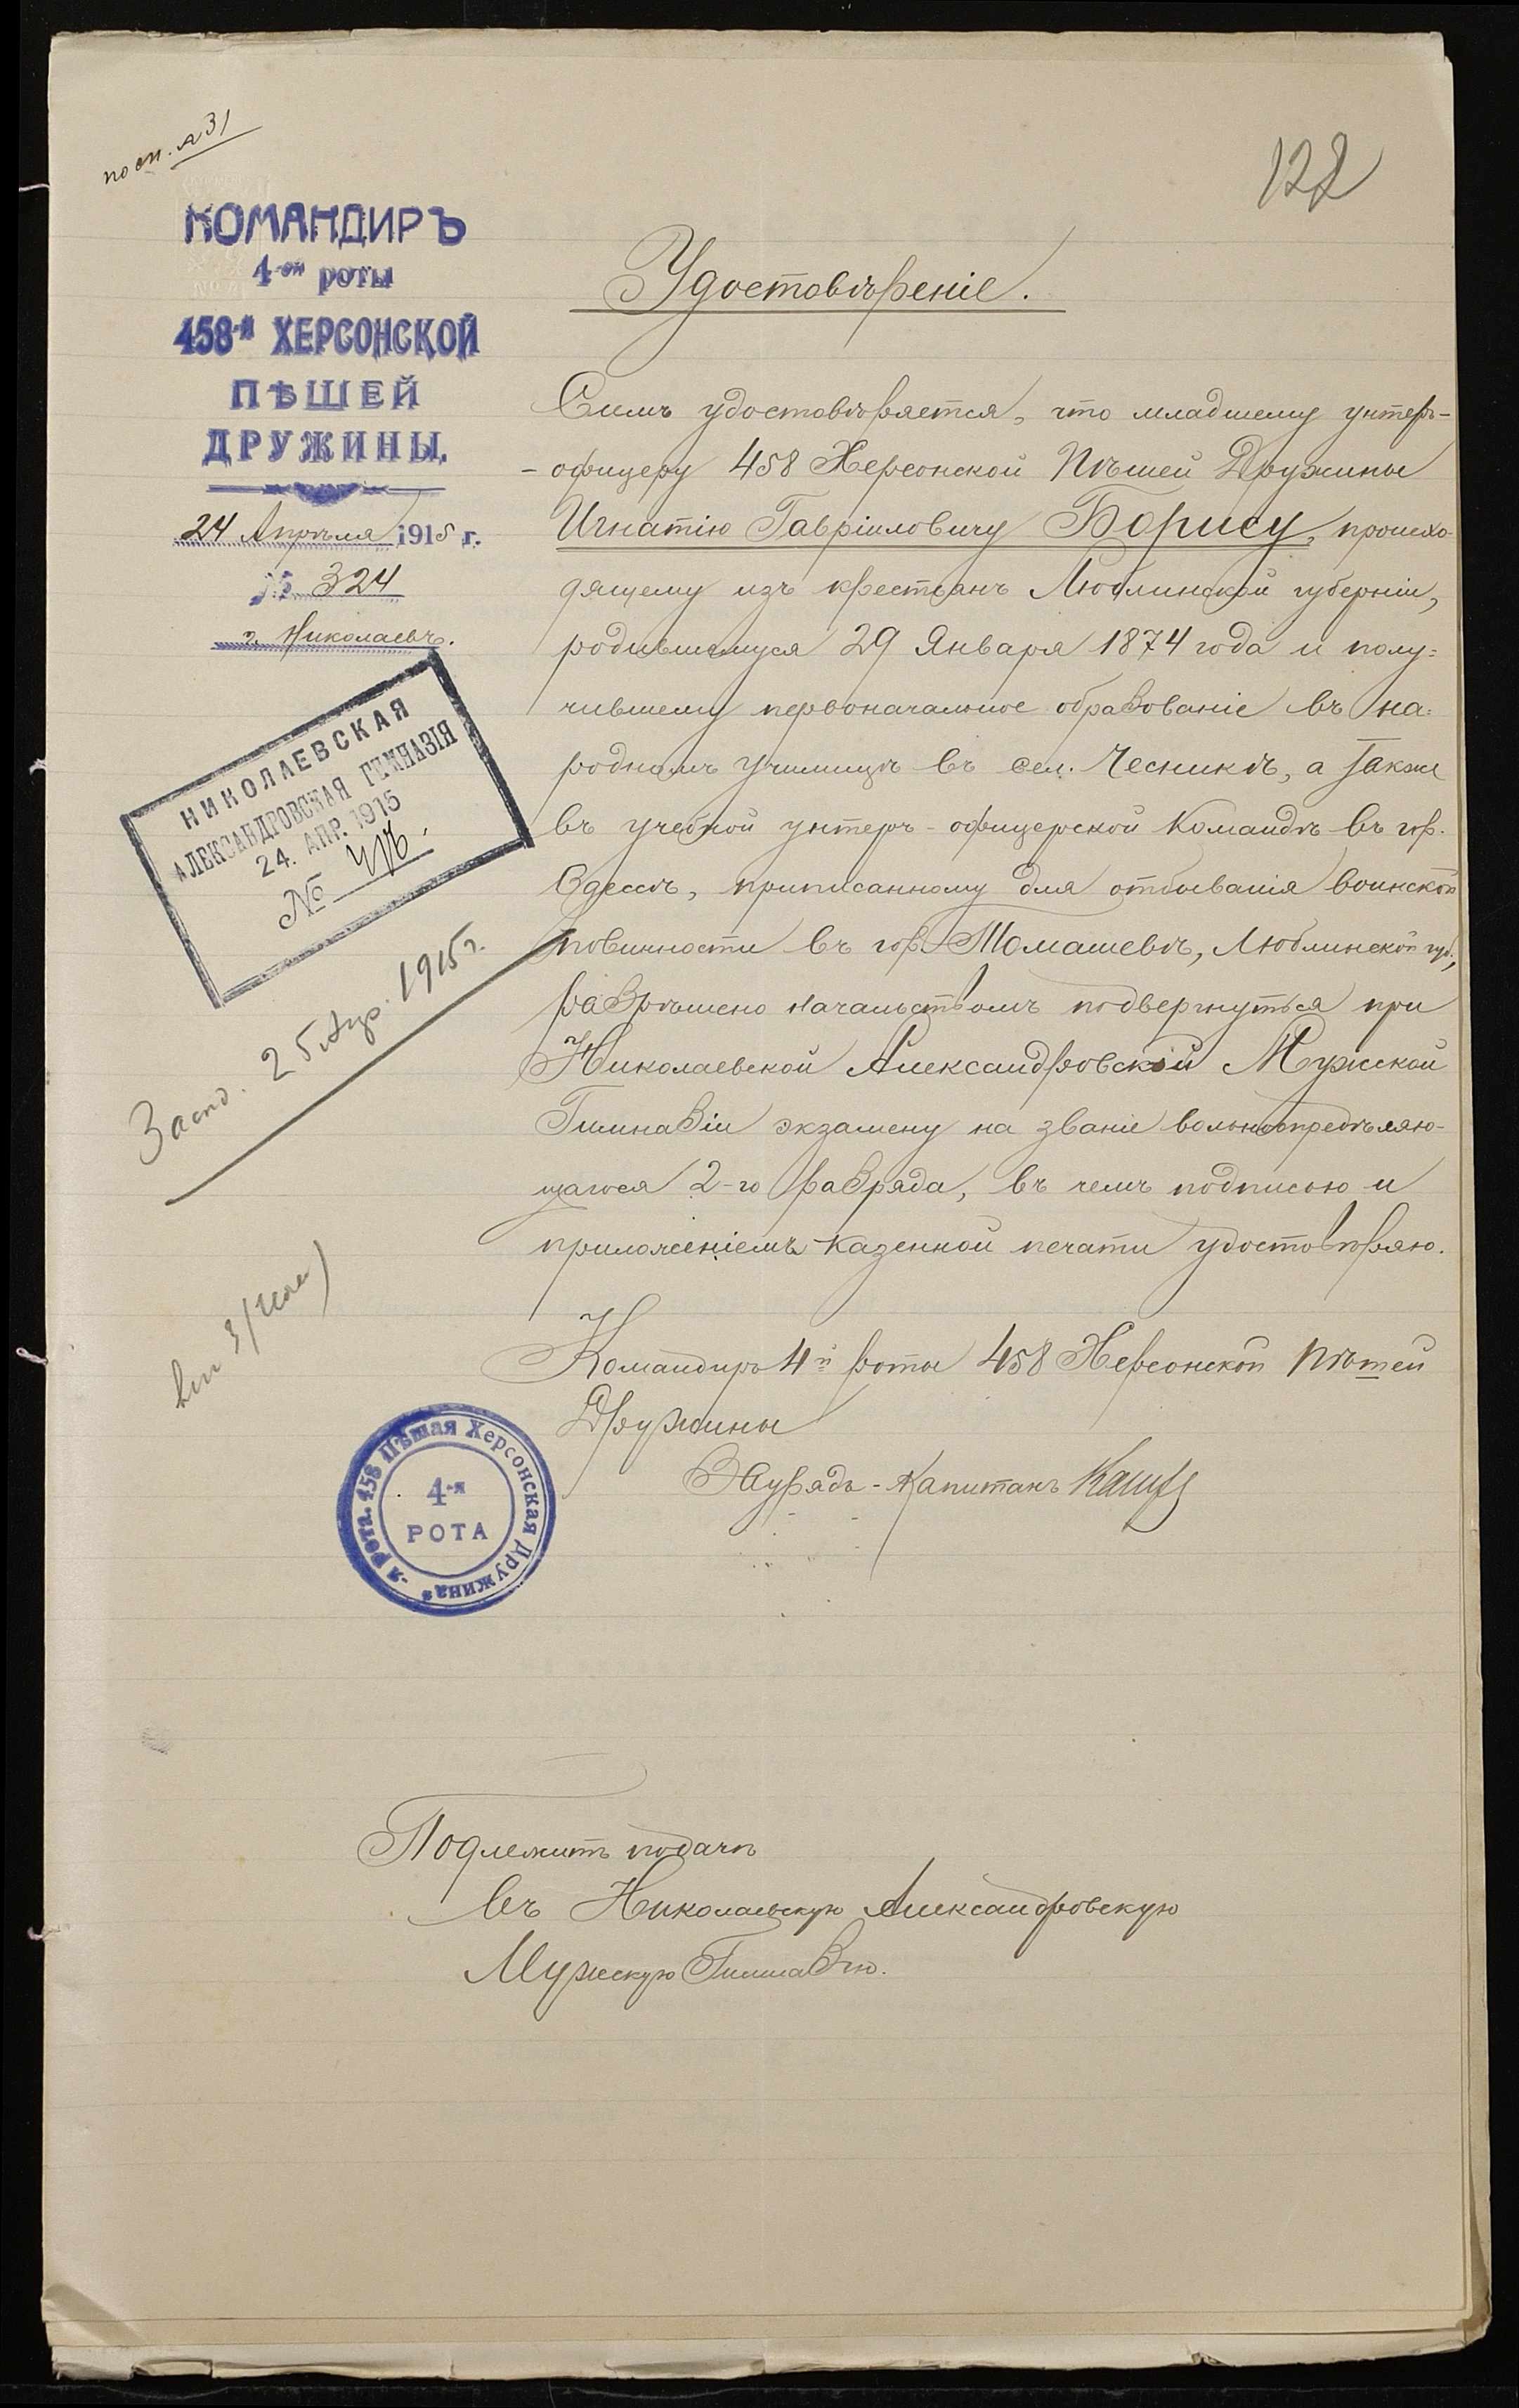 по сп. № 31
122
КОМАНДИРЪ
4-ой роты
458-й ХЕРСОНСКОЙ
ПѢШЕЙ
ДРУЖИНЫ.
24 Апрѣля 1915 г.
№ 324
г. Николаевъ.
НИКОЛАЕВСКАЯ
АЛЕКСАНДРОВСКАЯ ГИМНАЗІЯ
24. АПР. 1915
№
25 Апр. 1915 г.
Удостовѣреніе.
Симъ удостовѣряется, что младшему унтеръ-
-офицеру 458 Херсонской Пѣшей Дружины
Игнатію Гавріиловичу Борису, происхо-
дящему изъ крестьянъ Люблинской губерніи,
родившемуся 29 Января 1874 года и полу-
чившему первоначальное образованіе въ на-
родномъ училищѣ въ сел. Чесникѣ, а также
въ учебной унтеръ-офицерской командѣ въ гор.
Одессѣ, приписанному для отбыванія воинской
повинности въ гор. Томашевѣ, Люблинской губ.,
разрѣшено начальствомъ подвергнуться при
Николаевской Александровской Мужской
Гимназіи экзамену на званіе вольноопредѣляю-
щагося 2-го разряда, въ чемъ подписью и
приложеніемъ казенной печати удостовѣряю.
Командиръ 4й роты 458 Херсонской Пѣшей
Дружины
Заурядъ-Капитанъ
4-я рота. 458 Пѣшая Херсонская Дружина
4-я
РОТА
Подлежитъ подачѣ
въ Николаевскую Александровскую
Мужскую Гимназію.